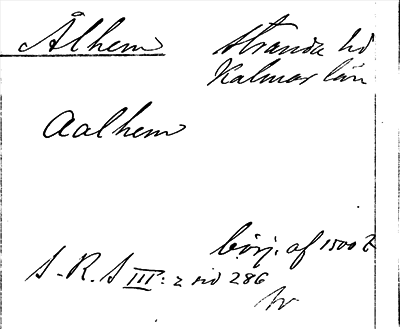 Ålhem Stranda hd
Kalmar län
Aalhem
börj. af 1500 t.
S. R. S III: 2 sid 286